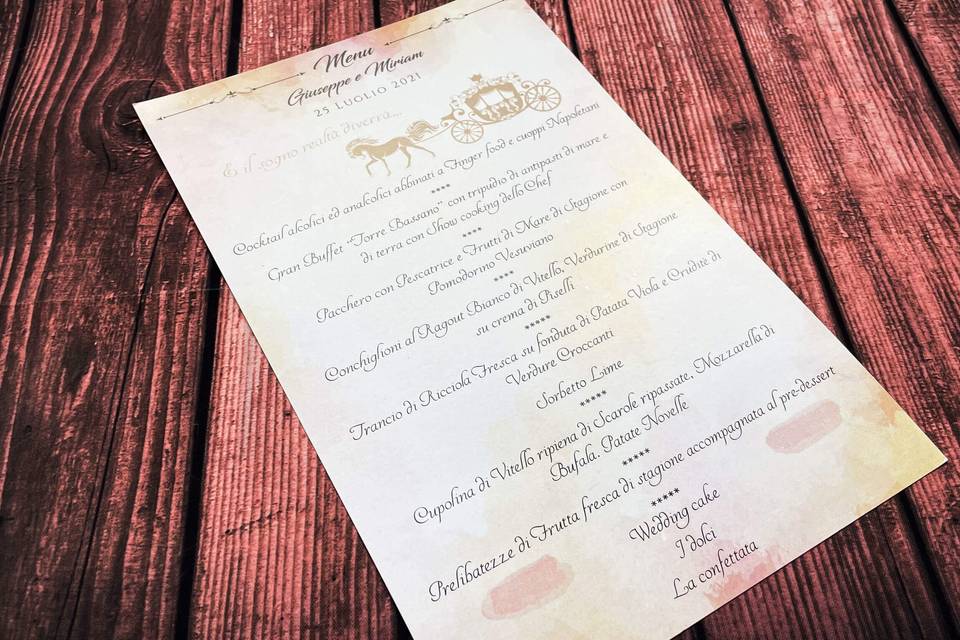 Menu
Giuseppe e Miriam
25 LUGLIO 2021
E il sogno realtà diverrà...
Cocktail alcolici ed analcolici abbinati a Finger food e cuoppi Napoletani
****
Gran Buffet "Torre Bassano" con tripudio di antipasti di mare e
di terra con Show cooking dello Chef
****
Pacchero con Pescatrice e Frutti di Mare di Stagione con
Pomodorino Vesuviano
****
Conchiglioni al Ragout Bianco di Vitello, Verdurine di Stagione
su crema di Piselli
*****
Trancio di Ricciola Fresca su fonduta di Patata Viola e Crudité di
Verdure Croccanti
Sorbetto Lime
*****
Cupolina di Vitello ripiena di Scarole ripassate, Mozzarella di
Bufala. Patate Novelle
*****
Prelibatezze di Frutta fresca di stagione accompagnata al pre-dessert
*****
Wedding cake
I dolci
La confettata